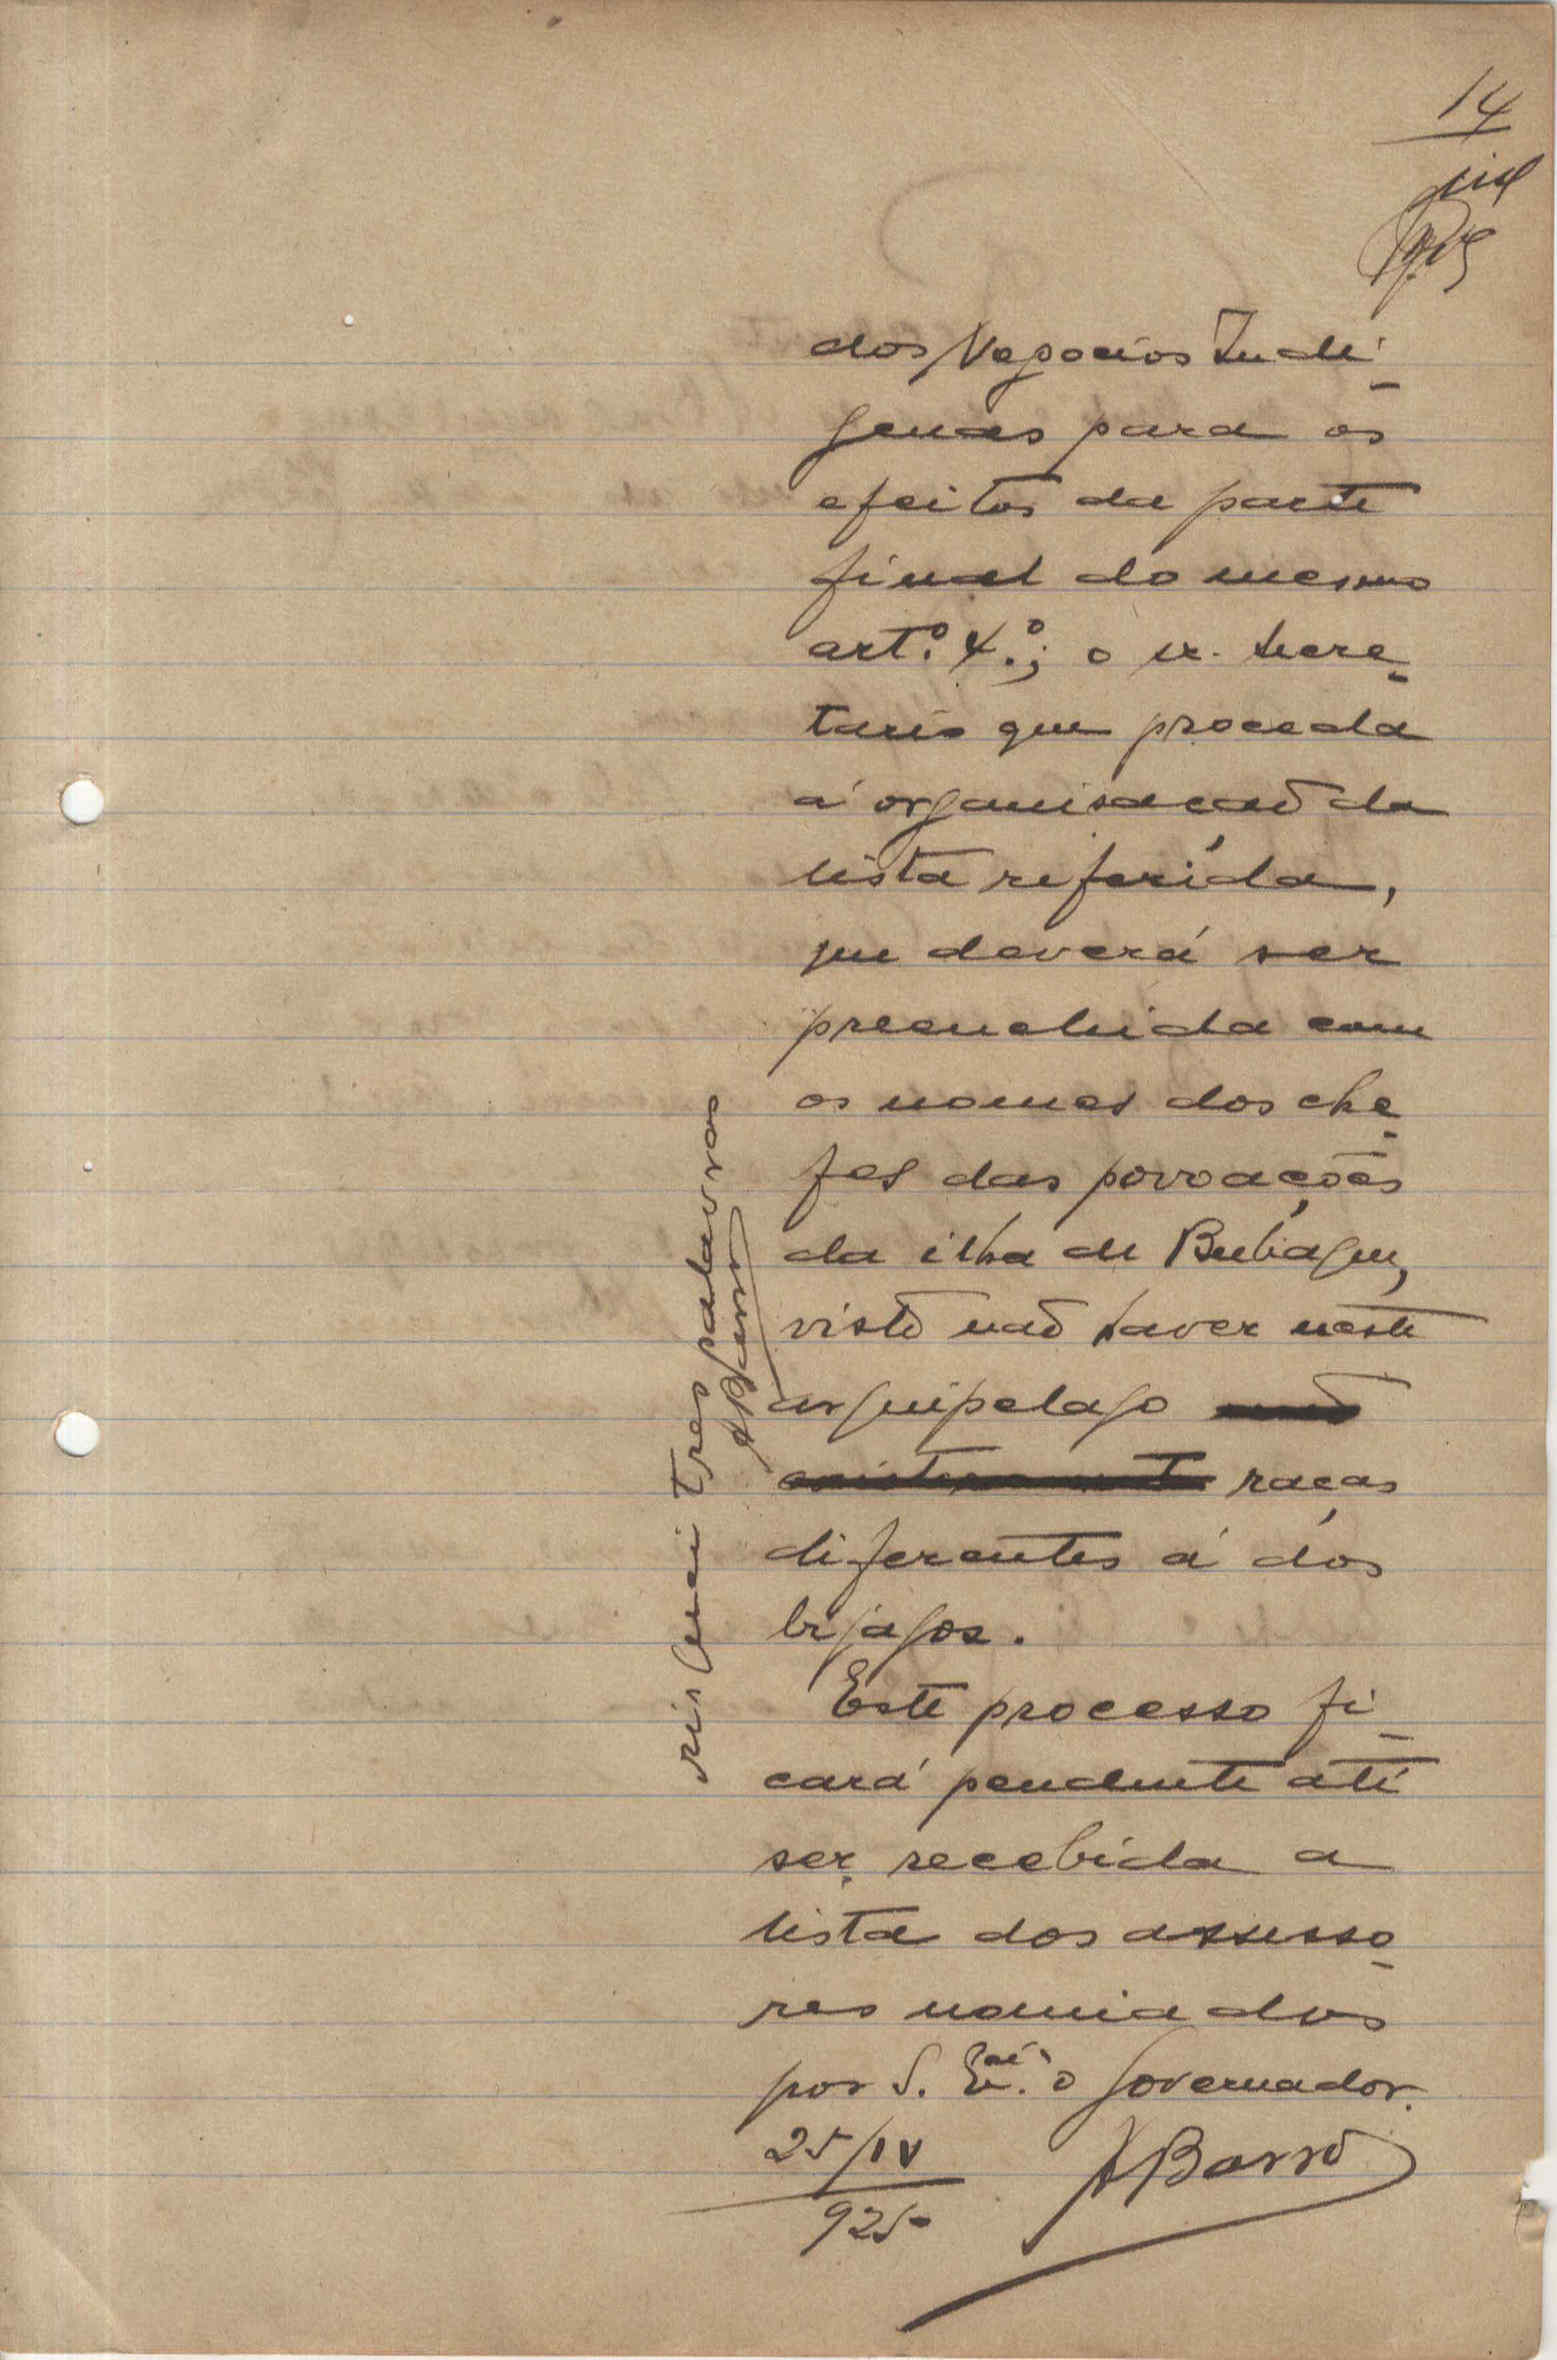 14
dos Negocios Indi-
genas para os
efeitos da parte
final do mesmo
art.º 4.º; o sr. secre-
tario que proceda
á organisação da
lista referida,
que deverá ser
preenchida com
os nomes dos che-
fes das povoações
da ilha de Bubaque,
visto não haver neste
arquipelago
raças
diferentes á dos
bijagos.
Este processo fi-
cará pendente até
ser recebida a
lista dos assesso-
res nomiados
por S. Ex.ª o Governador.
25/IV
925-
ABarro
Risquei tres palavras
ABarro